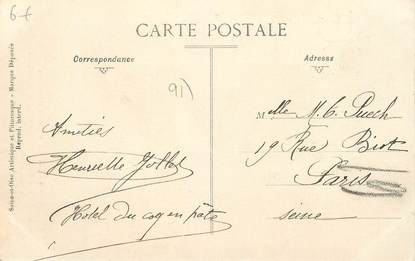 6f
CARTE POSTALE
Correspondance
Adresse
91)
Amitiés
Henriette
Hotel du coq en pâte
Melle M. G. Puech
19 Rue Biot
Paris
Seine
Artistique et Pittoresque - Marque Déposée
Reprod. interd.